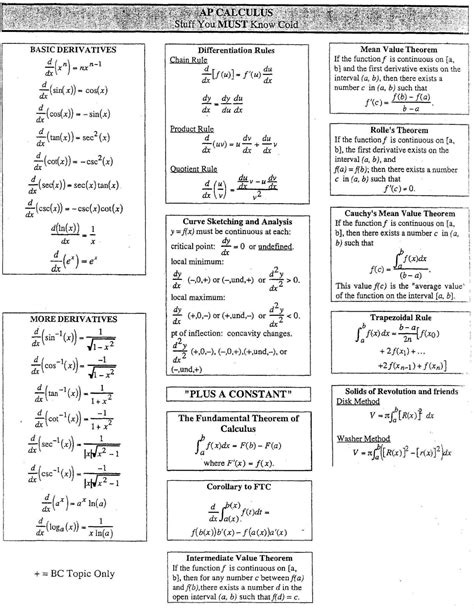 AP CALCULUS
Stuff You MUST Know Cold
BASIC DERIVATIVES
d/dx (x^n) = nx^(n-1)
d/dx (sin(x)) = cos(x)
d/dx (cos(x)) = -sin(x)
d/dx (tan(x)) = sec^2(x)
d/dx (cot(x)) = -csc^2(x)
d/dx (sec(x)) = sec(x)tan(x)
d/dx (csc(x)) = -csc(x)cot(x)
d(ln(x))/dx = 1/x
d/dx (e^x) = e^x
MORE DERIVATIVES
d/dx (sin^-1(x)) = 1/√(1-x^2)
d/dx (cos^-1(x)) = -1/√(1-x^2)
d/dx (tan^-1(x)) = 1/(1+x^2)
d/dx (cot^-1(x)) = -1/(1+x^2)
d/dx (sec^-1(x)) = 1/(|x|√(x^2-1))
d/dx (csc^-1(x)) = -1/(|x|√(x^2-1))
d/dx (a^x) = a^x ln(a)
d/dx (log_a(x)) = 1/(x ln(a))
+ = BC Topic Only
Differentiation Rules
Chain Rule
d/dx [f(u)] = f'(u) du/dx
dy/dx = dy/du du/dx
Product Rule
d/dx (uv) = u dv/dx + du/dx v
Quotient Rule
d/dx (u/v) = (du/dx v - u dv/dx)/v^2
Curve Sketching and Analysis
y = f(x) must be continuous at each:
critical point: dy/dx = 0 or undefined.
local minimum:
dy/dx (-,0,+) or (-,und,+) or d^2y/dx^2 >0.
local maximum:
dy/dx (+,0,-) or (+,und,-) or d^2y/dx^2 <0.
pt of inflection: concavity changes.
d^2y/dx^2 (+,0,-),(-,0,+),(+,und,-), or
(-,und,+)
"PLUS A CONSTANT"
The Fundamental Theorem of
Calculus
∫_a^b f(x)dx = F(b) - F(a)
where F'(x) = f(x).
Corollary to FTC
d/dx ∫_a(x)^b(x) f(t)dt =
f(b(x))b'(x) - f(a(x))a'(x)
Intermediate Value Theorem
If the function f is continuous on [a,
b], then for any number c between f(a)
and f(b), there exists a number d in the
open interval (a, b) such that f(d) = c.
Mean Value Theorem
If the function f is continuous on [a,
b] and the first derivative exists on the
interval (a, b), then there exists a
number c in (a, b) such that
f'(c) = (f(b) - f(a))/(b - a).
Rolle's Theorem
If the function f is continuous on [a,
b], the first derivative exists on the
interval (a, b), and
f(a) = f(b); then there exists a number
c in (a, b) such that
f'(c) = 0.
Cauchy's Mean Value Theorem
If the function f is continuous on [a,
b], then there exists a number c in (a,
b) such that
f(c) = ∫_a^b f(x)dx/(b - a).
This value f(c) is the "average value"
of the function on the interval [a, b].
Trapezoidal Rule
∫_a^b f(x)dx = (b-a)/2n [f(x0)
+ 2f(x1) + ...
+2f(x_n-1) + f(x_n)]
Solids of Revolution and friends
Disk Method
V = π∫_a^b [R(x)]^2 dx
Washer Method
V = π∫_a^b ([R(x)]^2 - [r(x)]^2) dx